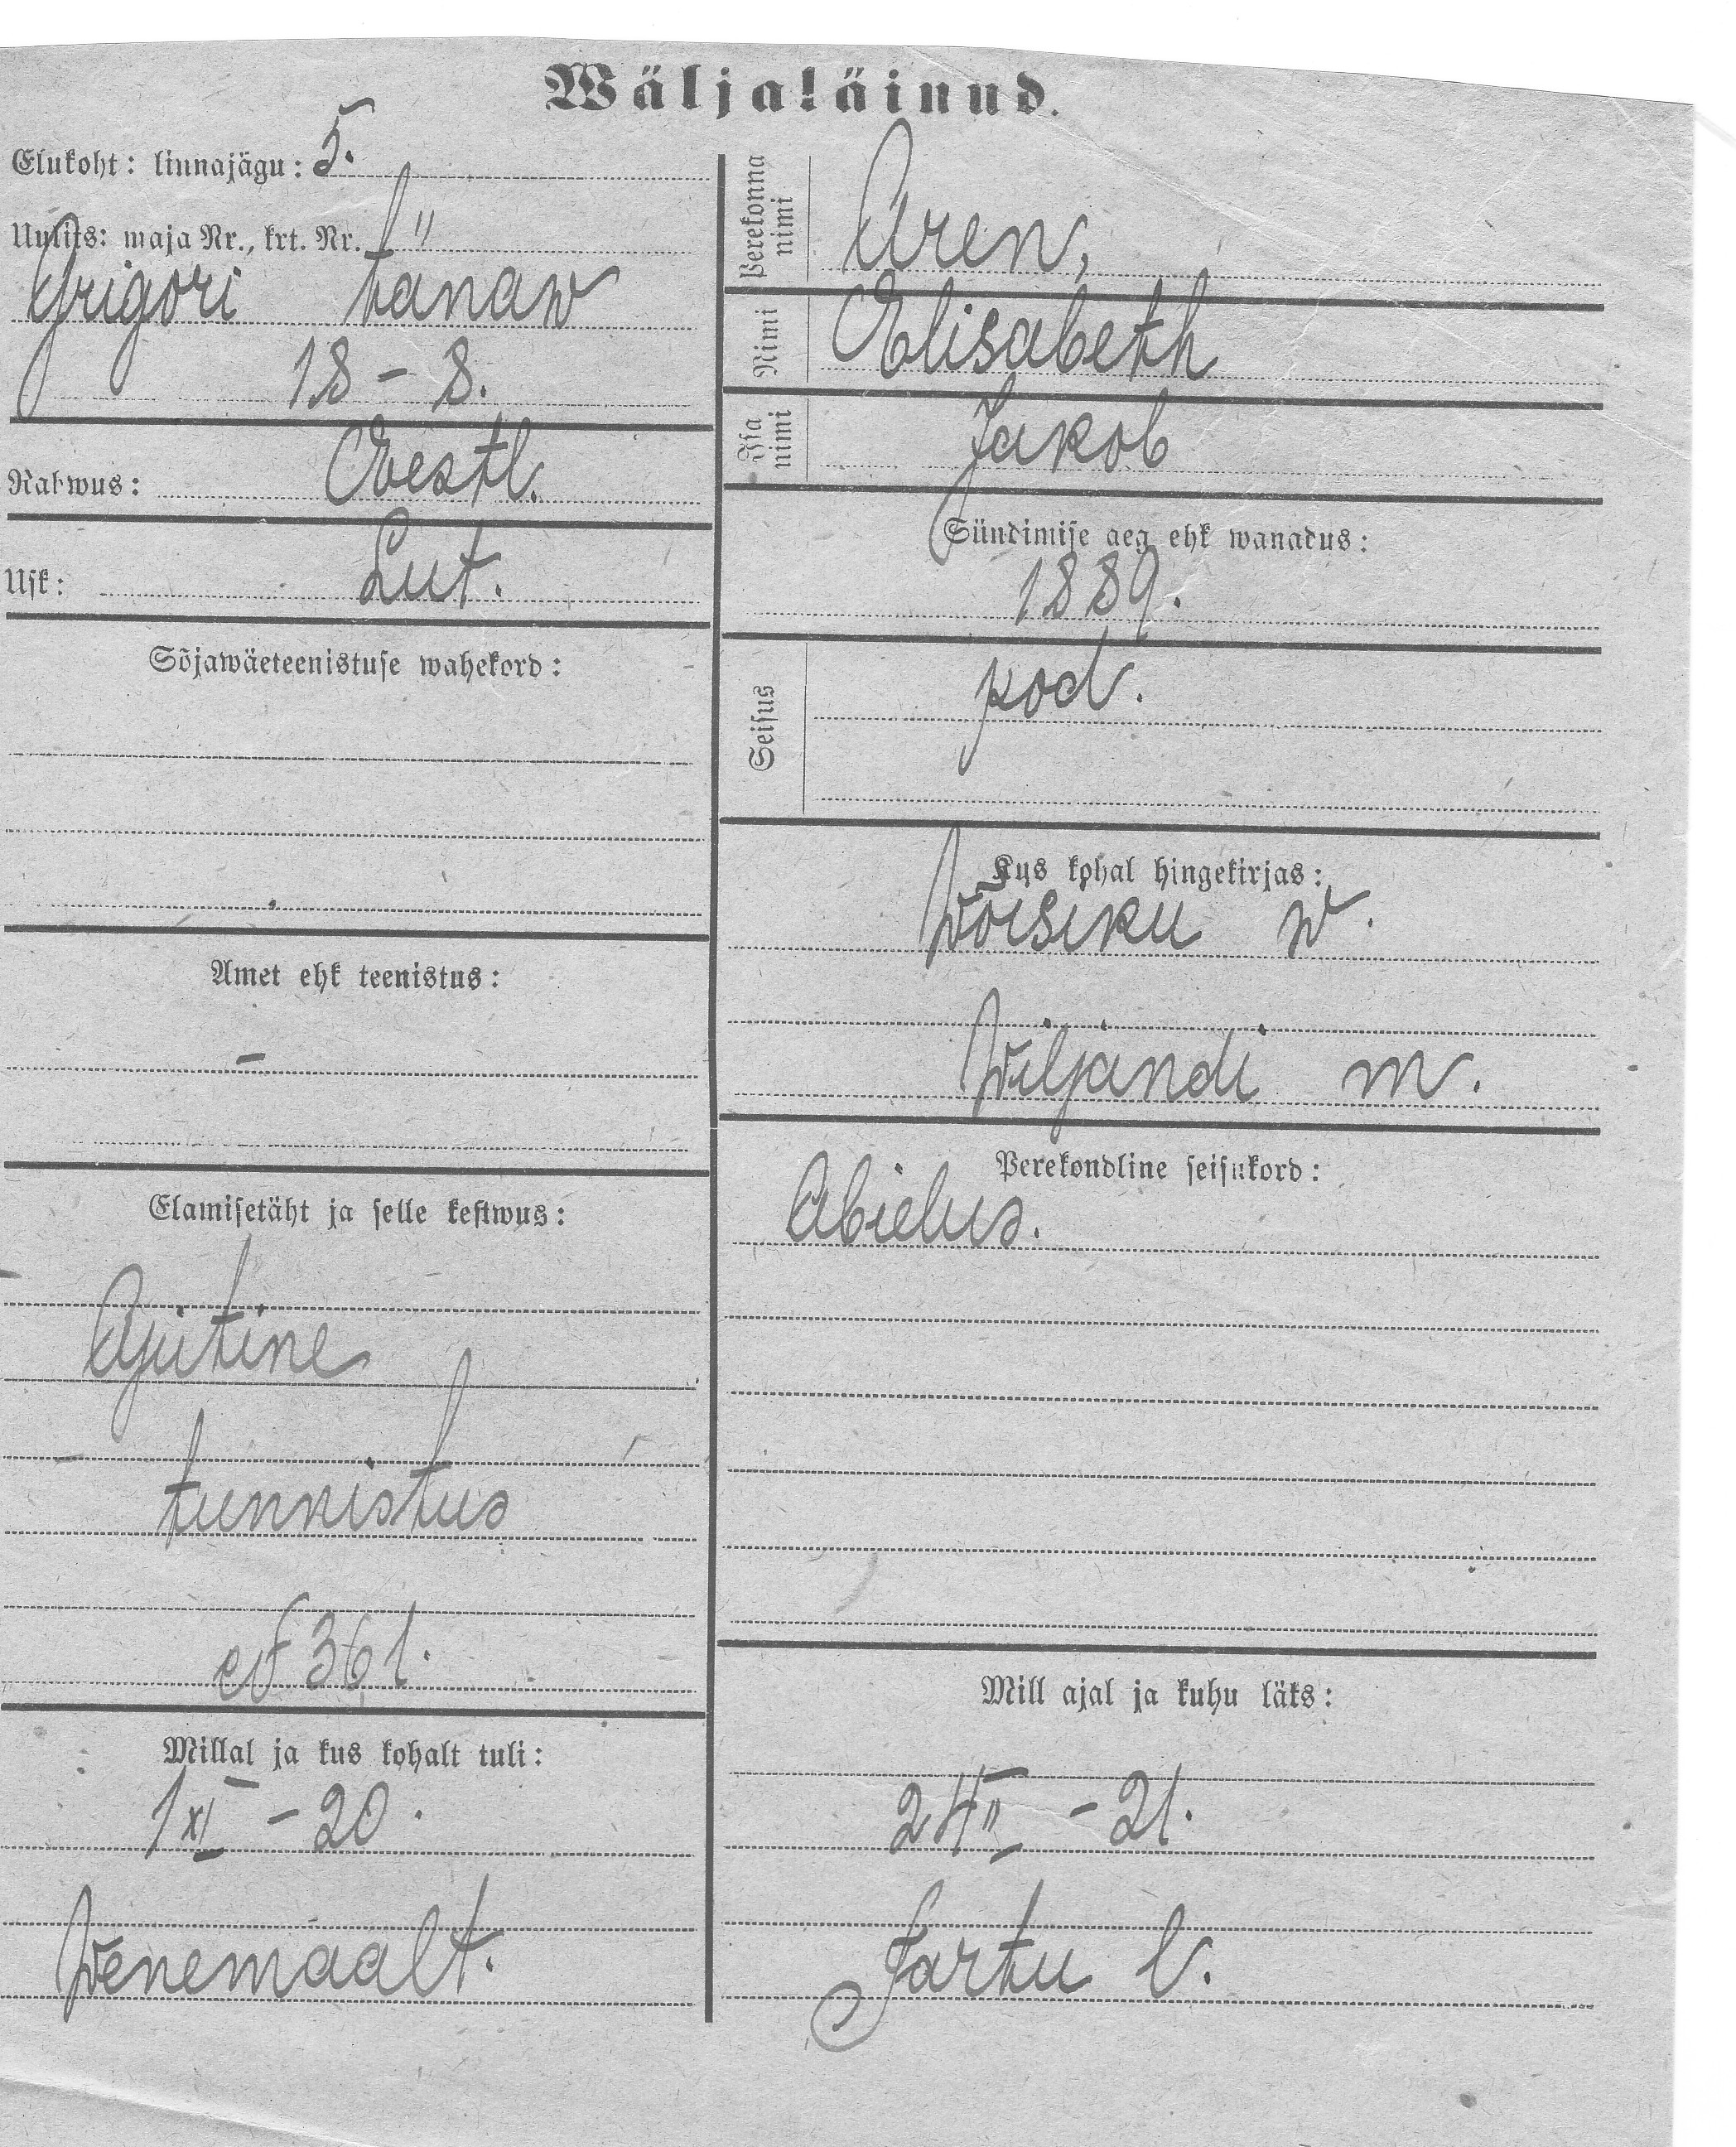 Wäljaläinud.
Elukoht: linnajagu: 5.
Uulits: maja Nr., krt. Nr. "
Grigori tänaw
18 - 8.
Rahwus: Eestl.
Usk: Lut.
Sõjawäeteenistuse wahekord:
Amet ehk teenistus:
-
Elamisetäht ja selle kestwus:
Ajutine
tunnistus
№ 361.
Millal ja kus kohalt tuli:
1 XI - 20.
Wenemaalt.
Perekonna nimi
Aren,
Nimi
Elisabeth
Isa nimi
Jakob
Sündimise aeg ehk wanadus:
1889.
Seisus
kod.
Kus kohal hingekirjas:
Wõisiku w.
Wiljandi m.
Perekondline seisukord:
Abielus.
Mill ajal ja kuhu läks:
24 II - 21.
Tartu l.